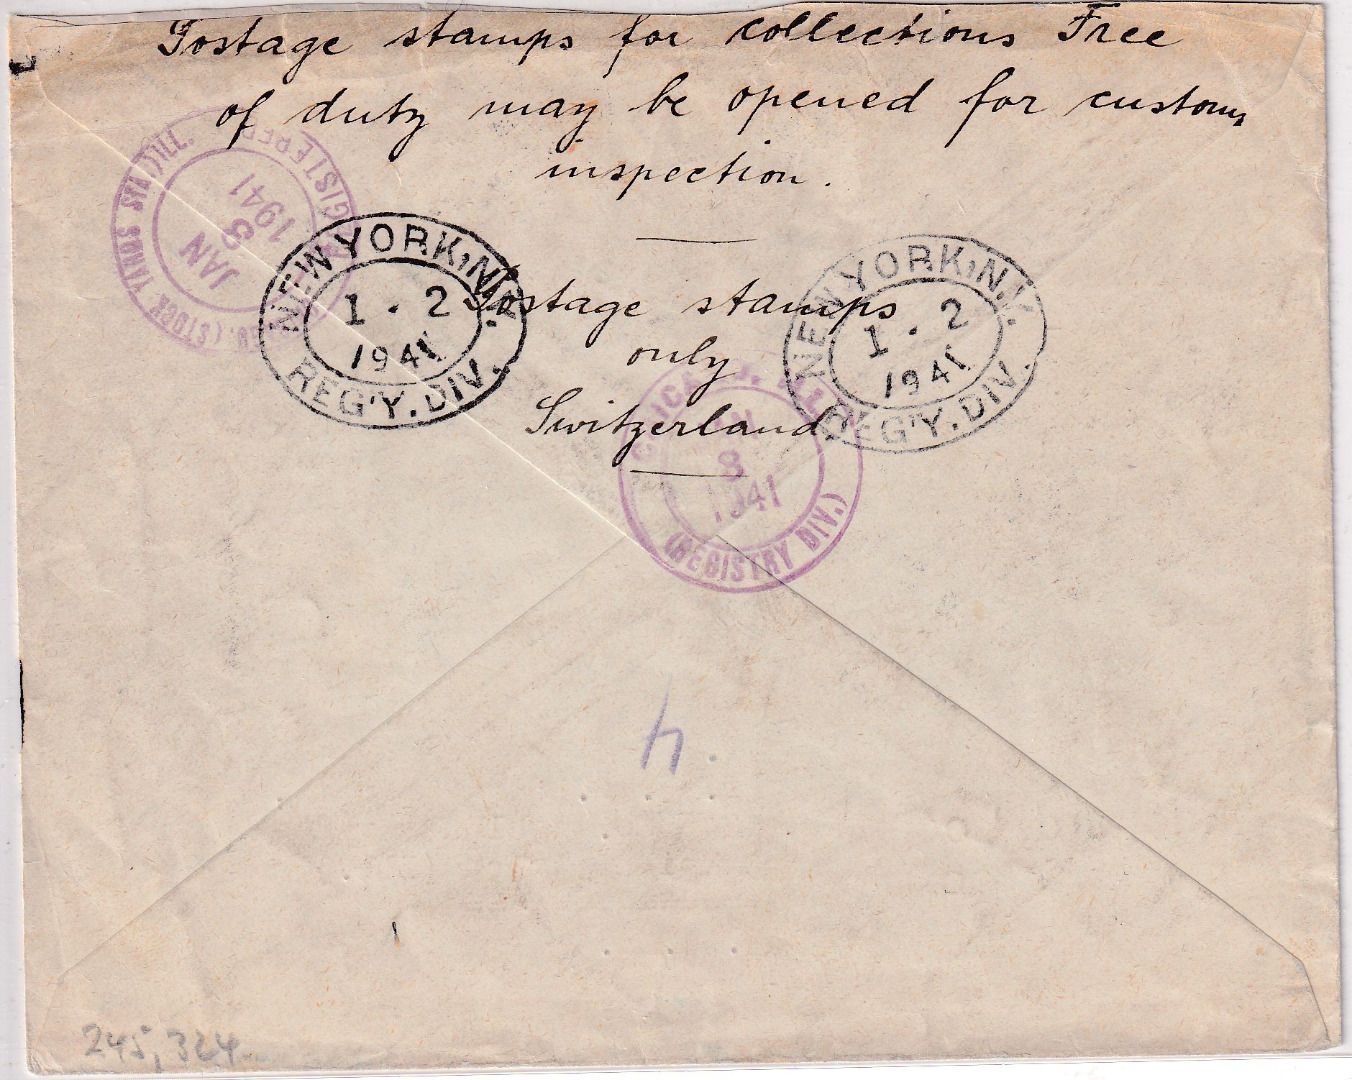 Postage stamps for collections Free
of duty may be opened for customs
inspection.
Postage stamps
only
Switzerland
NEW YORK, N.Y.
1 . 2
1941
REG'Y. DIV.
NEW YORK, N.Y.
1 . 2
1941
REG'Y. DIV.
REGISTERED
JAN
8
1941
(STOCK YARDS STA.) ILL.
CHICAGO, ILL.
8
1941
(REGISTRY DIV.)
4.
245, 324